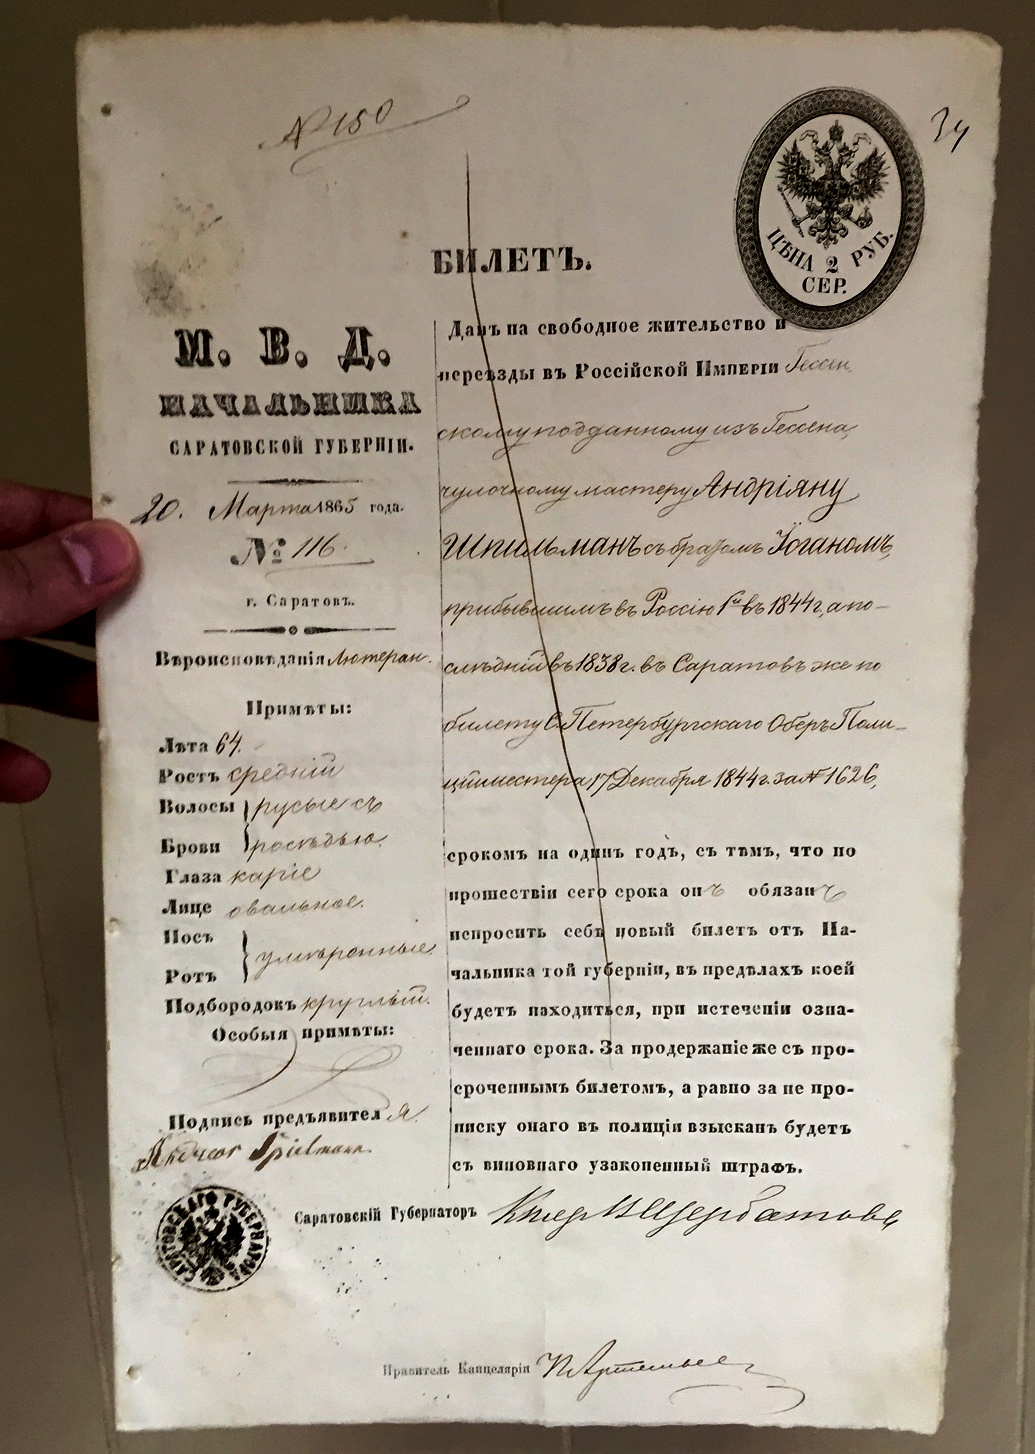 № 150
34
ЦѢНА 2 РУБ.
СЕР.
БИЛЕТЪ.
М. В. Д.
НАЧАЛЬНИКА
САРАТОВСКОЙ ГУБЕРНІИ.
20. Марта 1865 года.
№ 116.
г. Саратовъ.
Вѣроисповѣданія Лютеран.
Примѣты:
Лѣта 64.
Ростъ средній
Волосы русые съ
Брови просѣдью.
Глаза каріе
Лице овальное.
Носъ
Ротъ умѣренные
Подбородокъ круглый.
Особыя примѣты:
Подпись предъявителя
Spielmann
Данъ на свободное жительство и
переѣзды въ Россійской Имперіи Гессен
скому подданному изъ Гессена,
чулочному мастеру Андріяну
Шпильманъ съ братомъ Іоганомъ,
прибывшимъ въ Россію 1й въ 1844 г, а по-
слѣдній въ 1838 г. въ Саратовъ же по
билету С. Петербургскаго Оберъ Поли-
цiймейстера 17 Декабря 1844 г. за № 1626,
срокомъ на одинъ годъ, съ тѣмъ, что по
прошествіи сего срока онъ обязанъ
испросить себѣ новый билетъ отъ На-
чальника той губерніи, въ предѣлахъ коей
будетъ находиться, при истеченіи озна-
ченнаго срока. За продержаніе же съ про-
сроченнымъ билетомъ, а равно за не про-
писку онаго въ полиціи взысканъ будетъ
съ виновнаго узаконенный штрафъ.
САРАТОВСКАГО ГУБЕРНАТОРА
Саратовскій Губернаторъ Щербатовъ
Правитель Канцеляріи